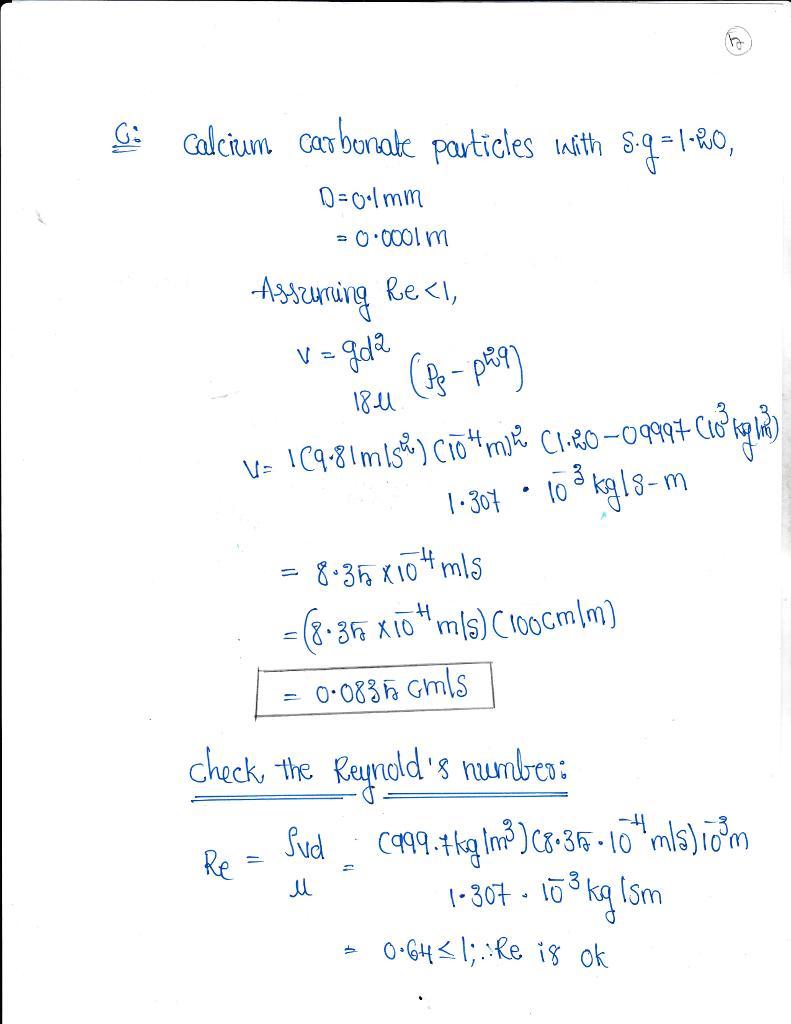 5
C: Calcium carbonate particles with S.g = 1.20,
D = 0.1 mm
= 0.0001 m
Assuming Re < 1,
V = gd² / 18μ (ρs - ρ^29)
V = 1(9.81 m/s²) (10⁻⁴ m)² (1.20 - 09997 (10³ kg/m³) / 1.307 · 10⁻³ kg/s-m
= 8.35 × 10⁻⁴ m/s
= (8.35 × 10⁻⁴ m/s) (100 cm/m)
= 0.0835 cm/s
Check the Reynold's number:
Re = ρvd / μ = (999.7 kg/m³) (8.35 · 10⁻⁴ m/s) 10⁻³ m / 1.307 · 10⁻³ kg/sm
= 0.64 ≤ 1; ∴ Re is ok